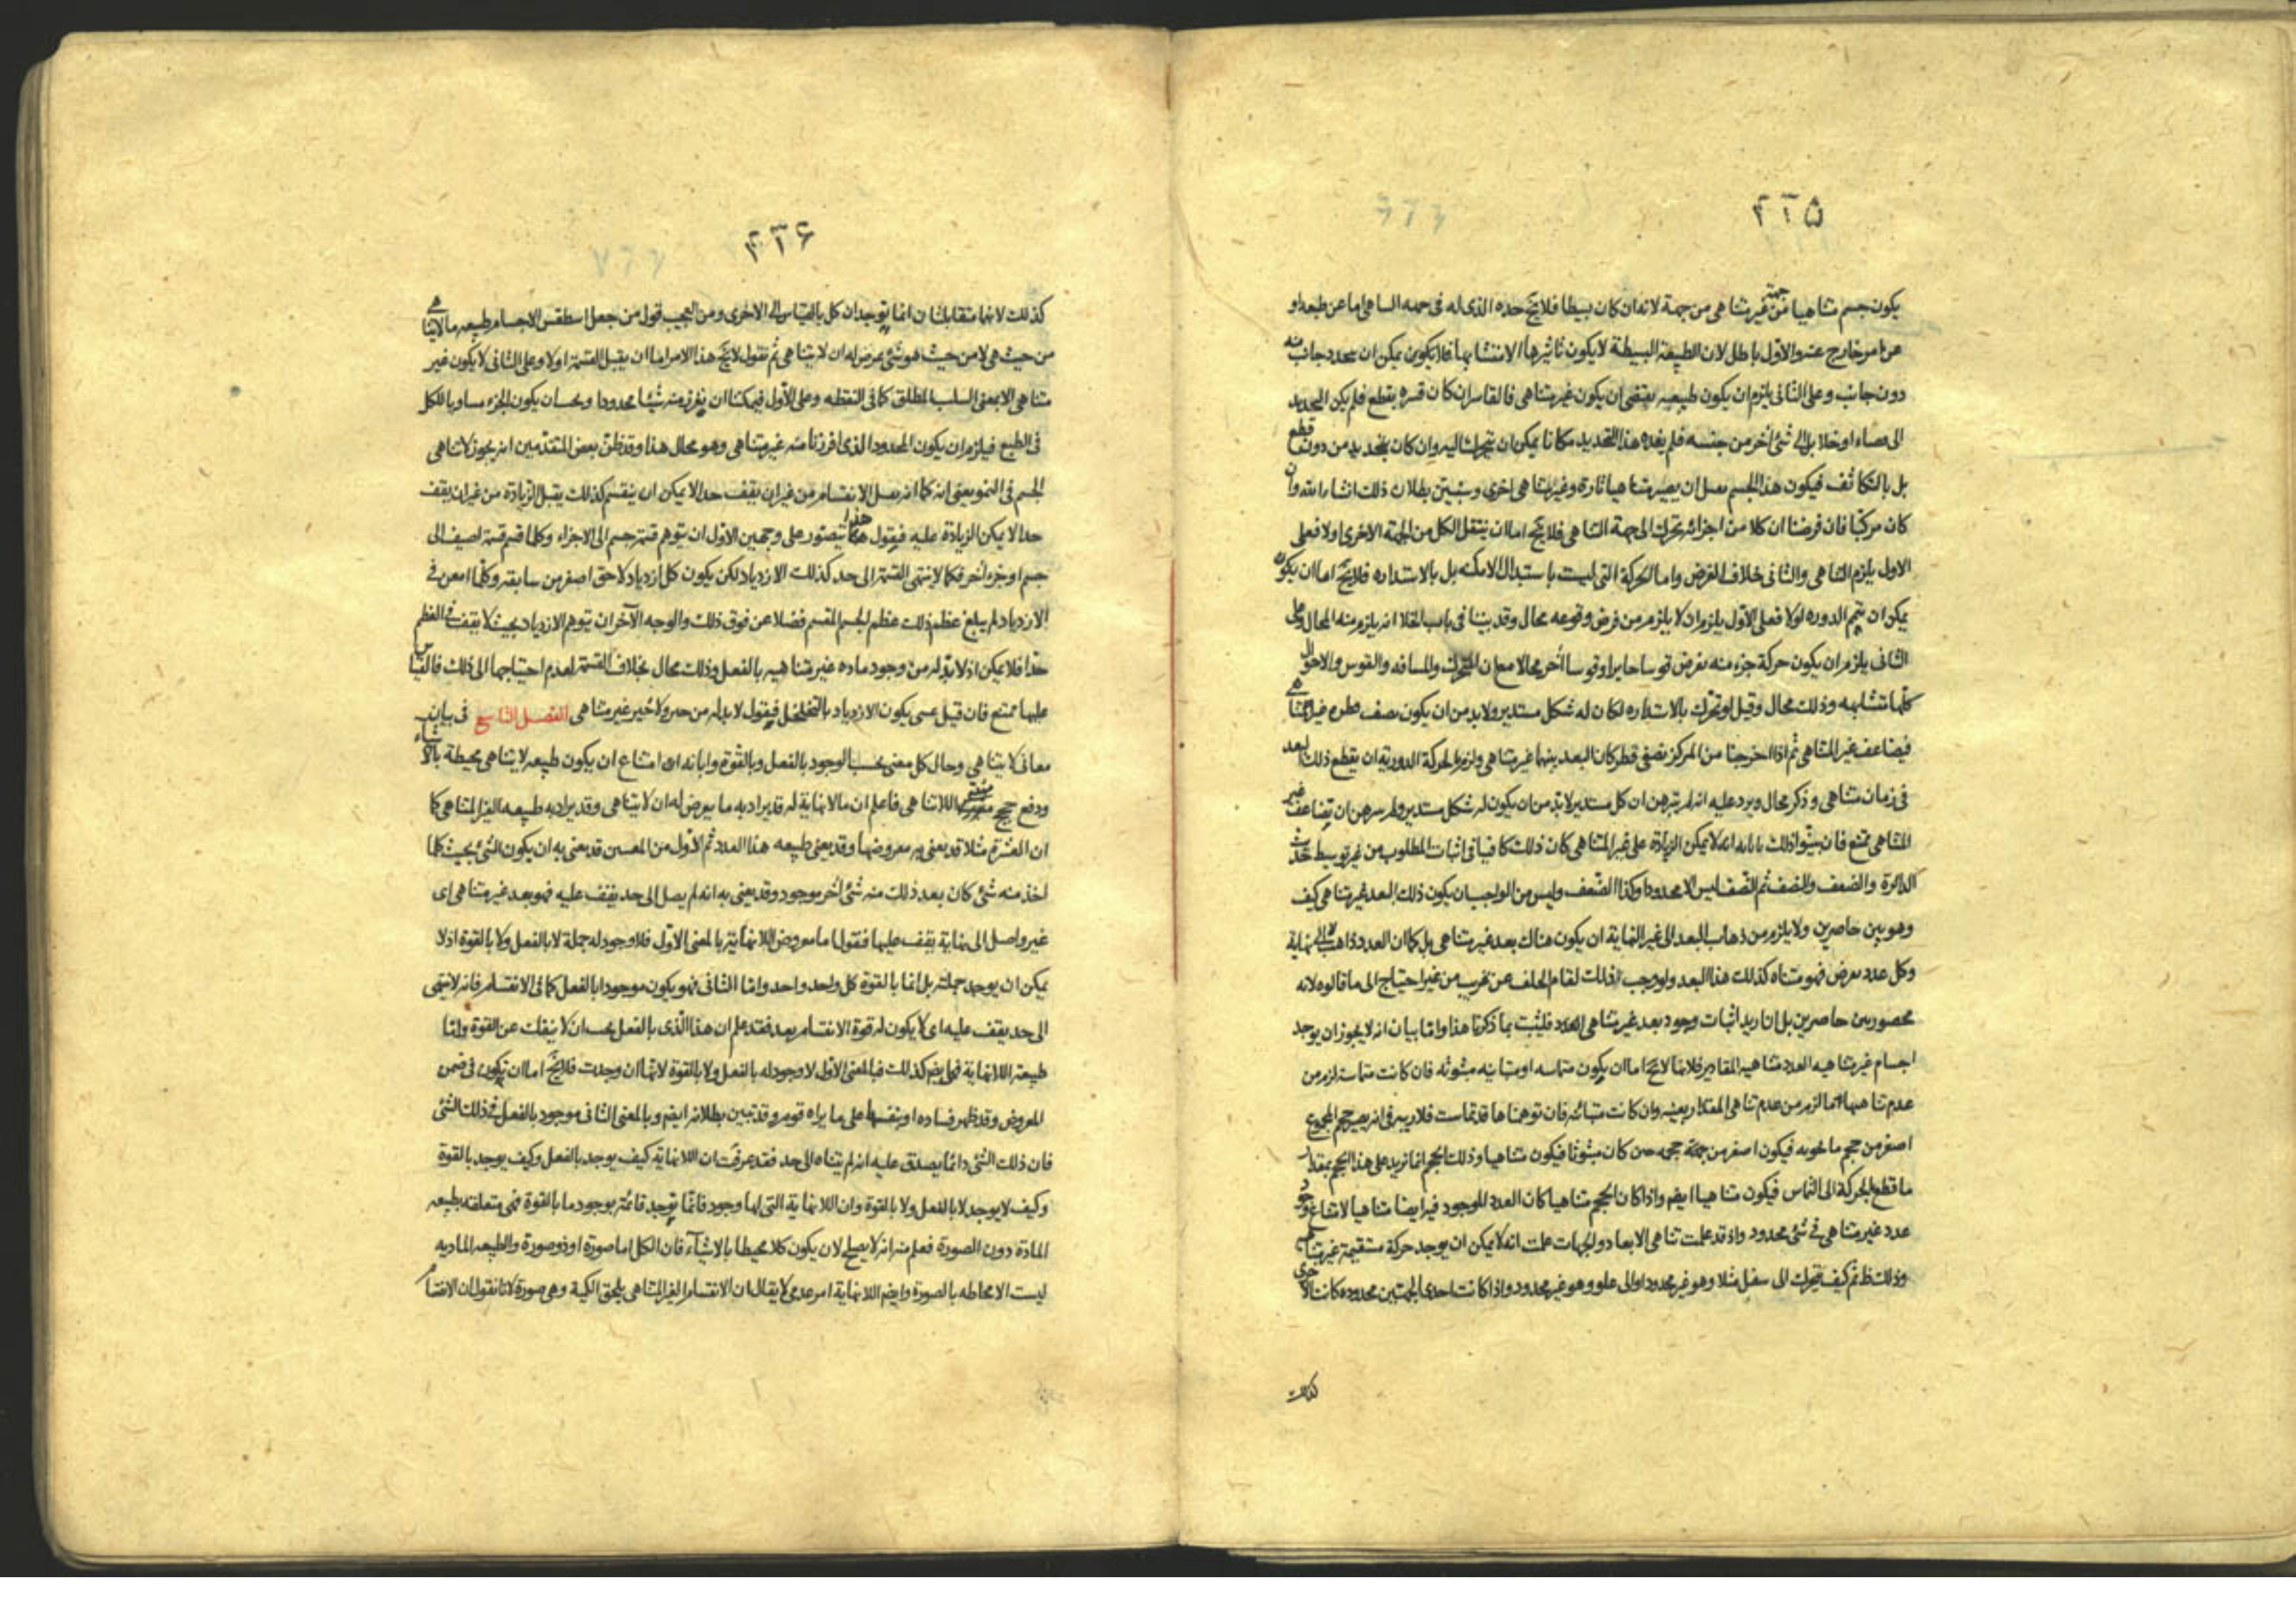 ۴۲۵
يكون جسم متناهيا من جهة غير متناهى من جهة لانه ان كان بسيطا فلا يخ حده الذى له فى جهه التناهى اما عن طبعه او
عن امر خارج عنه والاول باطل لان الطبيعة البسيطة لا يكون تاثيرها الا متشابها فلا يكون يمكن ان يتحدد جانب منه
دون جانب وعلى الثانى يلزم ان يكون طبيعيه يقتضى ان يكون غير متناهى فالقاسر ان كان قسره بقطع فلم يكن التحديد
الى فضاء او خلا بل الى شئ اخر من جنسه فلم يفده هذا التحديد مكانا يمكن ان يتحرك اليه وان كان يتحديد من دون قطع
بل بالتكاثف فيكون هذا الجسم يقبل ان يصير متناهيا تارة وغير متناهى اخرى وسنبين بطلان ذلك انشاء الله وان
كان مركبا فان فرضنا ان كلا من اجزائه تحرك الى جهة التناهى فلا يخ اما ان ينتقل الكل من الجهة الاخرى اولا فعلى
الاول يلزم التناهى والثانى خلاف الفرض واما الحركة التى ليست باستبدال الامكنه بل بالاستداره فلا يخ اما ان يكون
يمكن ان يتم الدوره اولا فعلى الاول يلزم ان لا يلزم من فرض وقوعه محال وقد بينا فى باب الخلا انه يلزم منه المحال وعلى
الثانى يلزم ان يكون حركة جزء منه بفرض قوسا جايزا وقوسا اخر محالا مع ان المتحرك والمسافه والقوس والاحوال
كلها متشابهه وذلك محال وقيل لو تحرك بالاستداره لكان له شكل مستدير ولابد من ان يكون نصف قطره غير المتناهى
فيضاعف غير المتناهى ثم اذا اخرجنا من المركز نصفى قطر كان البعد بينهما غير متناهى ولزم الحركة الدورية ان يقطع ذلك البعد
فى زمان متناهى وذكر محال ويرد عليه انه لم يبرهن ان كل مستدير لابد من ان يكون له شكل مستدير ولم يبرهن ان تضاعف غير
المتناهى ممتنع فان بينوا ذلك بابانه انه لا يمكن الزيادة على غير المتناهى كان ذلك كافيا فى اثبات المطلوب من غير توسيط حديث
الدائرة والضعف والنصف ثم النصف ليس الا محدودا وكذا الضعف وليس من الواجب ان يكون ذلك البعد غير متناهى كيف
وهو بين حاصرين ولا يلزم من ذهاب البعد الى غير النهاية ان يكون هناك بعد غير متناهى بل كما ان العدد ذاهب لا الى نهاية
وكل عدد يعرض فهو متناه كذلك هذا البعد ولو وجب ذلك لقام الخلف عن قريب من غير احتياج الى ما قالوه لانه
محصور بين حاصرين بل ان اريد اثبات وجود بعد غير متناهى العدد فليثبت بما ذكرنا هذا واما بيان انه لا يجوز ان يوجد
اجسام غير متناهيه العدد متناهيه المقادير فلانها لا يخ اما ان يكون متماسه او متباينه مبثوثه فان كانت متماسة لزم من
عدم تناهيها ما لزم من عدم تناهى المقدار بعينه وان كانت متباينه فان توهمناها قد تماست فلا ريب فى انه يصير حجم المجموع
اصغر من حجم ما تحويه فيكون اصغر من جهة حجمه حين كان مبثوثا فيكون متناهيا وذلك الحجم انما تزيد على هذا الحجم بمقدار
ما قطع الحركة الى التماس فيكون متناهيا ايضم واذا كان الحجم متناهيا كان العدد الموجود فيه ايضا متناهيا لامتناع وجود
عدد غير متناهى فى شئ محدود واذ قد علمت تناهى الابعاد والجهات علمت انه لا يمكن ان يوجد حركة مستقيمة غير متناهيه
وذلك ظ ثم كيف يتحرك الى سفل مثلا وهو غير محدود او الى علو وهو غير محدود واذا كانت احدى الجهتين محدوده كانت الاخرى
كذلك
۴۲۶
كذلك لانهما متقابلتان انما توجدان كل بالقياس الى الاخرى ومن العجب قول من جعل اسطقس الاجسام طبيعه ما لا يتناهى
من حيث هى لا من حيث هو شئ يعرض له ان لا يتناهى ثم نقول لا يخ هذا الامر اما ان يقبل القسمة اولا وعلى الثانى لا يكون غير
متناهى الا بمعنى السلب المطلق كما فى النقطه وعلى الاول فيمكننا ان نفرز منه شيئا محدودا ويجب ان يكون الجزء مساويا للكل
فى الطبع فيلزم ان يكون المحدود الذى افرزنا منه غير متناهى وهو محال هذا وقد ظن بعض المتقدمين انه يجوز لا تناهى
الجسم فى النمو يعنى انه كما انه يقبل الانقسام من غير ان يقف حد الا يمكن ان ينقسم كذلك يقبل الزيادة من غير ان يقف
حدا لا يمكن الزيادة عليه فيقول هذا يتصور على وجهين الاول ان يتوهم قسمة جسم الى الاجزاء وكلما قسم قسمة اضيف الى
جسم او جزء اخر فكما لا ينتهى القسمة الى حد كذلك الازدياد لكن يكون كل ازدياد لاحق اصغر من سابقه وكلما امعن فى
الازدياد لم يبلغ عظم ذلك عظم الجسم المقسم فضلا عن فوق ذلك والوجه الآخر ان يتوهم الازدياد بحيث لا يقف فى العظم
حدا فلا يمكن اذ لابد له من وجود ماده غير متناهيه بالفعل وذلك محال بخلاف القسمة لعدم احتياجها الى ذلك فالقياس
عليها ممتنع فان قيل عسى يكون الازدياد بالتخلخل فيقول لابد له من حيز ولا حيز غير متناهى الفصل التاسع فى بيان
معانى لا يتناهى وحال كل معنى بحسب الوجود بالفعل وبالقوة وابانه ان امتناع ان يكون طبيعه لا يتناهى محيطة بالاشياء
ودفع حجج مثبتى اللاتناهى فاعلم ان مالانهاية له قد يراد به ما يعرض له ان لا يتناهى وقد يراد به طبيعه الغير المتناهى كما
ان العشرة مثلا قد يعنى به معروضها وقد يعنى طبيعه هذا العدد ثم الاول من المعنيين قد يعنى به ان يكون الشئ بحيث كلما
اخذ منه شئ كان بعد ذلك منه شئ اخر موجود وقد يعنى به انه لم يصل الى حد يقف عليه فهو بعد غير متناهى اى
غير واصل الى نهاية يقف عليها فنقول اما معروض اللانهائية بالمعنى الاول فلا وجود له جملة لا بالفعل ولا بالقوة اذ لا
يمكن ان يوجد جملته بل انما بالقوة كل واحد واحد واما الثانى فهو يكون موجودا بالفعل كما فى الانقسام فانه لا ينتهى
الى حد يقف عليه اى لا يكون له قوة الانقسام بعد فقد علم ان هذا الذى بالفعل يجب ان لا ينفك عن القوة واما
طبيعة اللانهاية فهى ايضم كذلك فبالمعنى الاول لا وجود له بالفعل ولا بالقوة لانها ان وجدت فلا يخ اما ان تكون فى ضمن
المعروض وقد ظهر فساده او بنفسها على ما يراه قوم وقد تبين بطلانه ايضم وبالمعنى الثانى موجود بالفعل فى ذلك الشئ
فان ذلك الشئ دائما يصدق عليه انه لم يتناه الى حد فقد عرفت ان اللانهاية كيف يوجد بالفعل وكيف يوجد بالقوة
وكيف لا يوجد لا بالفعل ولا بالقوة وان اللانهاية التى لها وجود فانما توجد قائمة بوجود ما بالقوة فهى متعلقه بطبيعه
المادة دون الصورة فعلم منه انه لا يصلح لان يكون كلا محيطا بالاشياء فان الكل اما صورة او ذو صورة والطبيعه الماديه
ليست الا محاطه بالصورة وايضم اللانهاية امر عدمى لا يقال ان الانقسام الغير المتناهى يلحق الكمية وهى صورة لانا نقول ان الانقسام